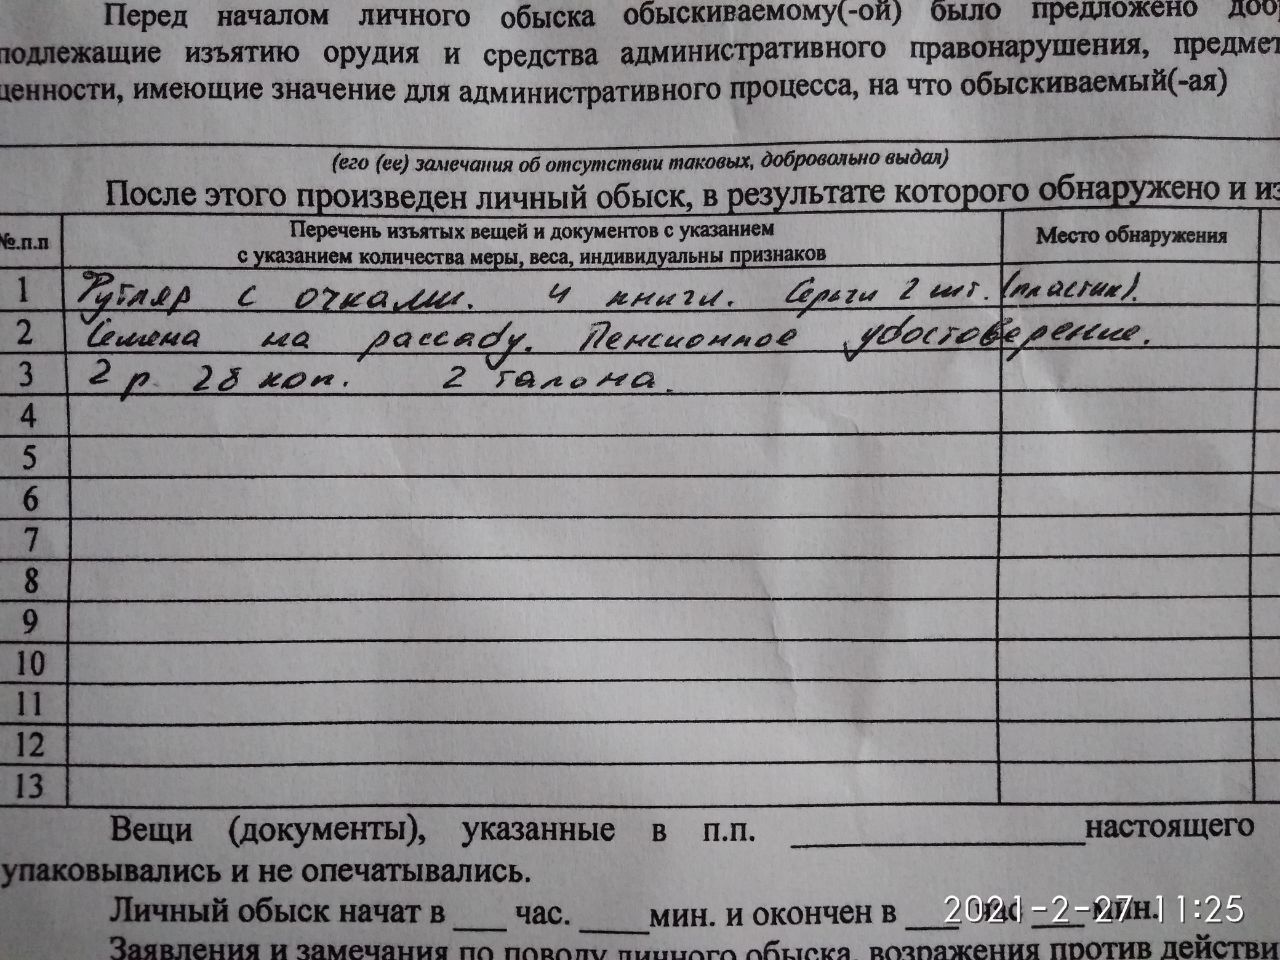 Перед началом личного обыска обыскиваемому(-ой) было предложено доб
подлежащие изъятию орудия и средства административного правонарушения, предмет
ценности, имеющие значение для административного процесса, на что обыскиваемый(-ая)
(его (ее) замечания об отсутствии таковых, добровольно выдал)
После этого произведен личный обыск, в результате которого обнаружено и из
№.п.п Перечень изъятых вещей и документов с указанием Место обнаружения
с указанием количества меры, веса, индивидуальны признаков
1 Футляр с очками. 4 книги. Серьги 2 шт. (пластик).
2 Семена на рассаду. Пенсионное удостоверение.
3 2 р. 28 коп. 2 талона.
4
5
6
7
8
9
10
11
12
13
Вещи (документы), указанные в п.п. настоящего
упаковывались и не опечатывались.
Личный обыск начат в ___ час. ____мин. и окончен в ___ час ___ мин.
2021-2-27 11:25
Заявления и замечания по поводу личного обыска, возражения против действи